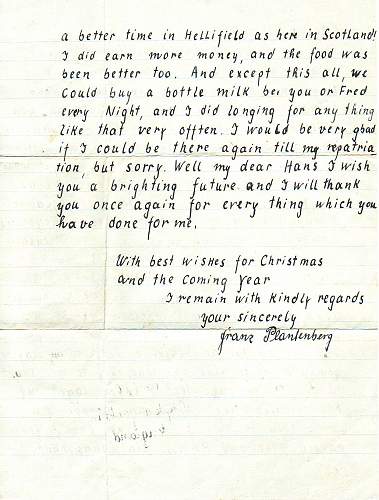 a better time in Hellifield as here in Scotland!
I did earn more money, and the food was
been better too. And except this all, we
could buy a bottle milk bei you or Fred
every Night, and I did longing for any thing
like that very offten. I would be very glad
if I could be there again till my repatria
tion, but sorry. Well my dear Hans I wish
you a brighting future and I will thank
you once again for every thing which you
have done for me.
With best wishes for Christmas
and the coming year
I remain with kindly regards
your sincerely
Franz Plantenberg